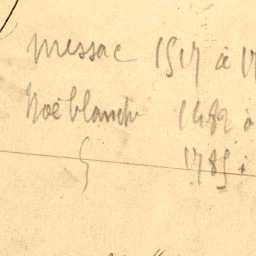 Messac 1517 à 17
Noëblanche 1482 à
1785 à